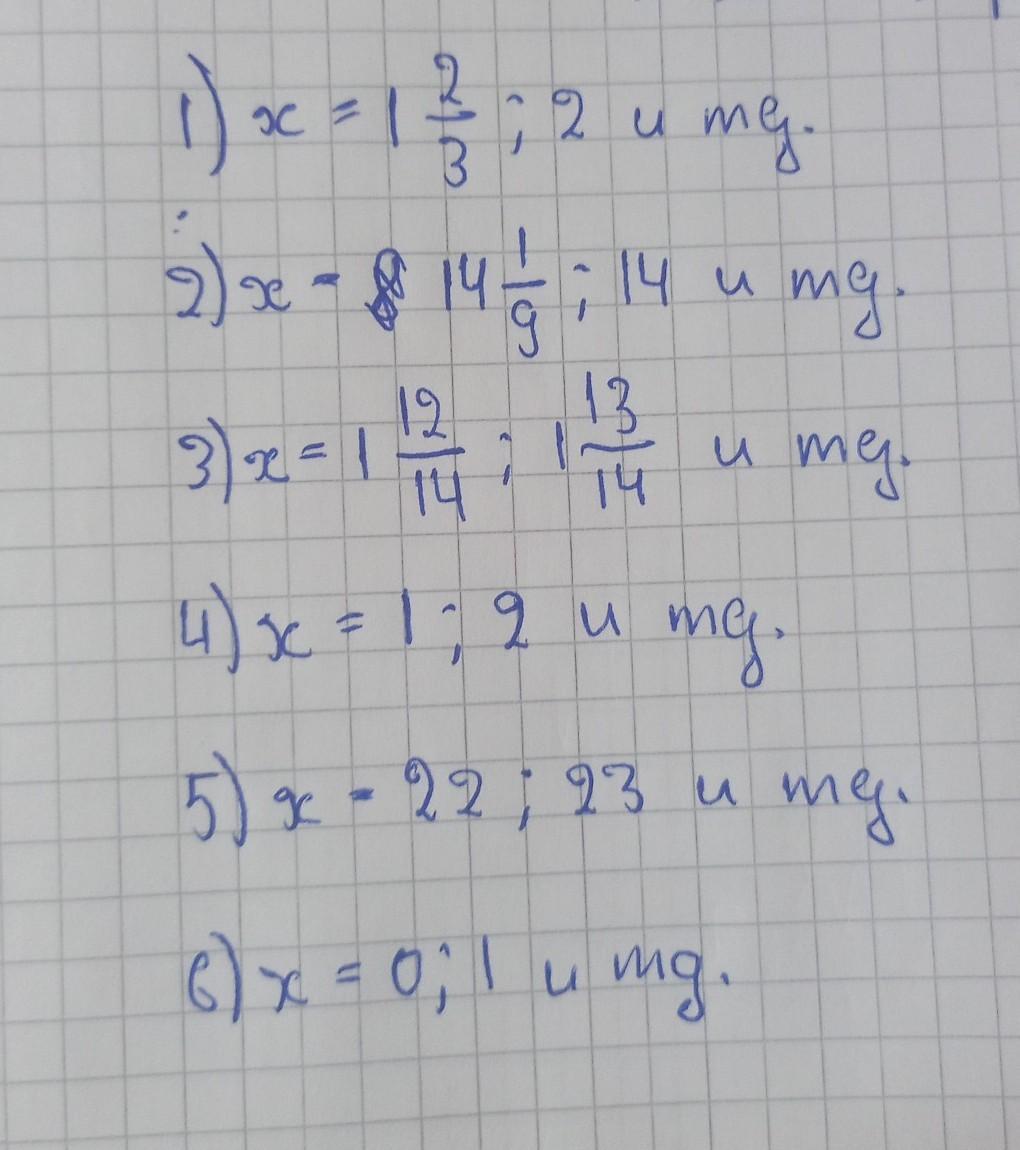 1) x = 1 2/3 ; 2 и тд.
2) x = 14 1/9 ; 14 и тд.
3) x = 1 12/14 ; 1 13/14 и тд.
4) x = 1 ; 2 и тд.
5) x = 22 ; 23 и тд.
6) x = 0 ; 1 и тд.